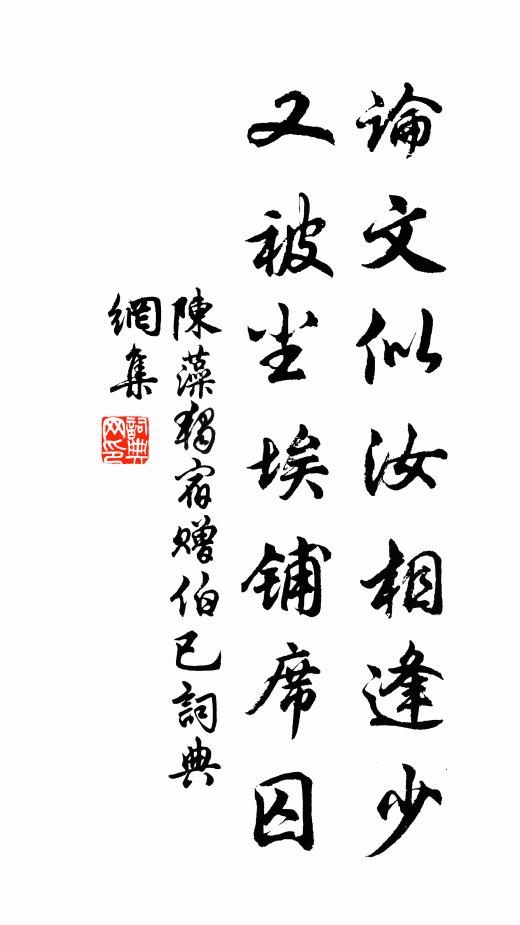 論文似汝相逢少
又被尘埃铺席囚
陳藻獨宿贈伯已詞典
網集
詞典網印